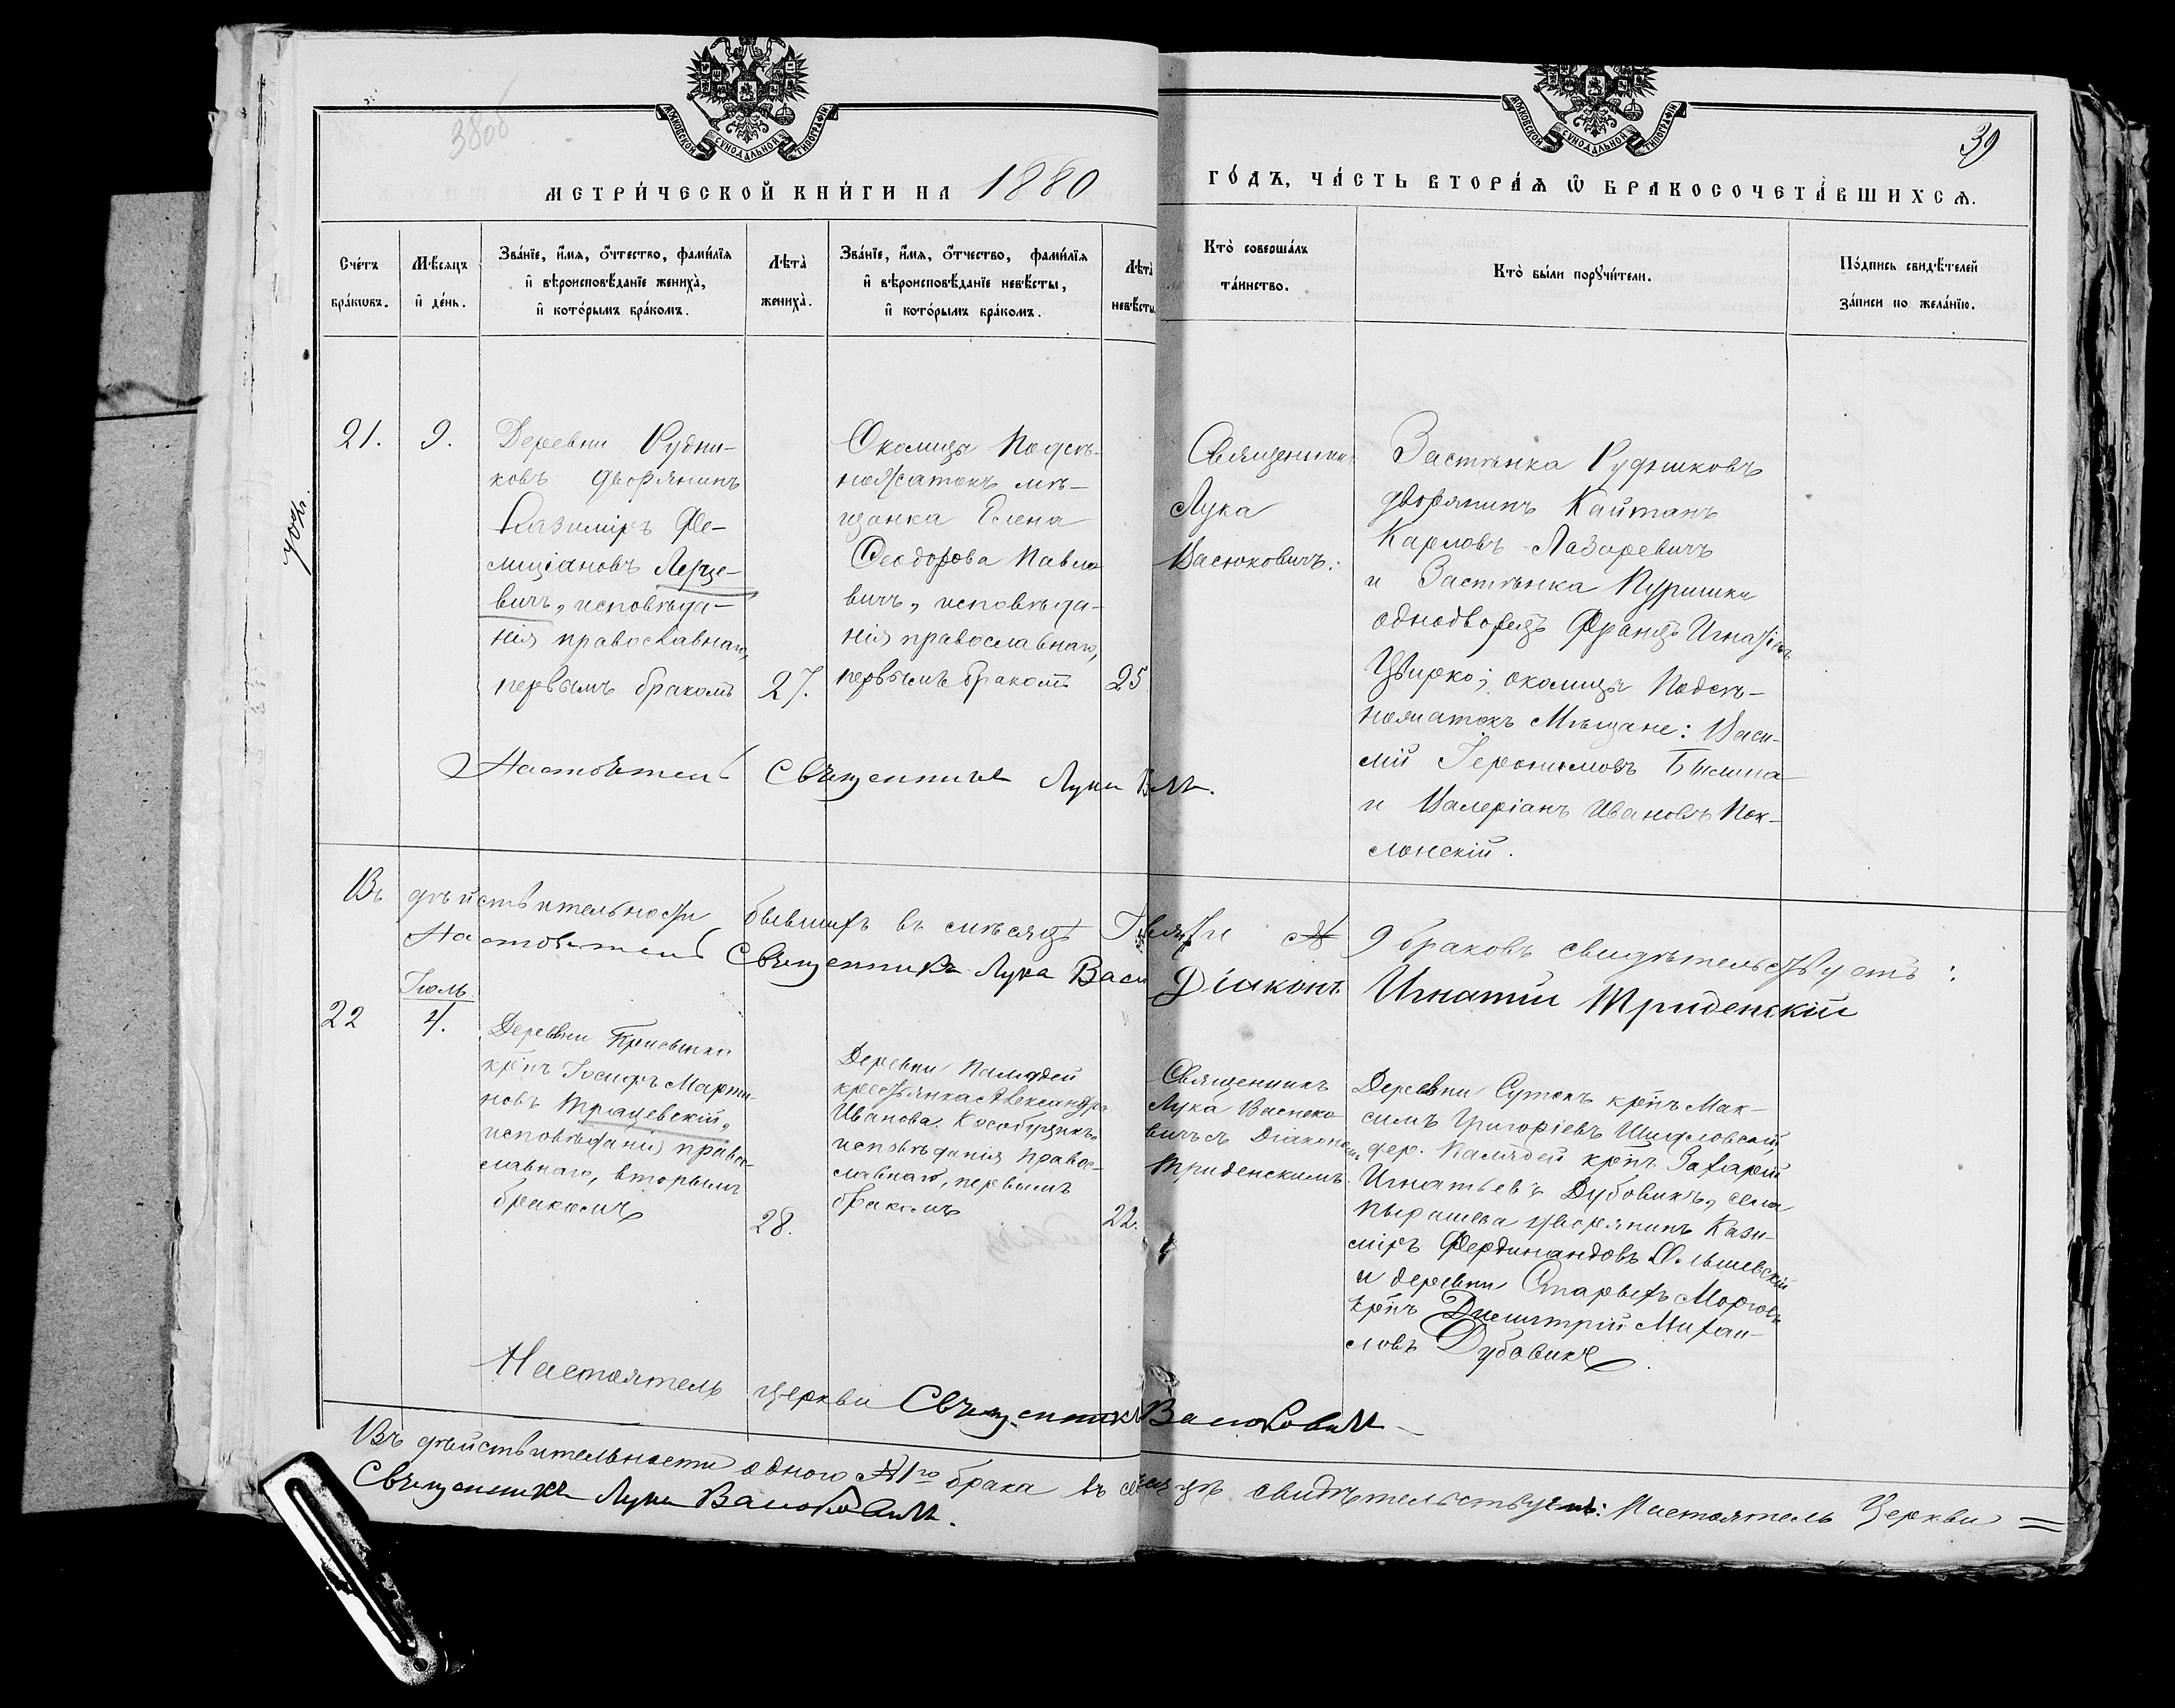 38об
39
МОСКОВСКОЙ СУНОДАЛЬНОЙ ТИПОГРАФІИ
МОСКОВСКОЙ СУНОДАЛЬНОЙ ТИПОГРАФІИ
МЕТРИ́ЧЕСКОЙ КНИ́ГИ НА 1880
ГО́ДЪ, ЧА́СТЬ ВТОРА́Ѧ Ѡ҆ БРАКОСОЧЕТА́ВШИХСѦ.
Сче́тъ
бра́кѡвъ.
Мѣ́сяцъ
и҆ де́нь.
Зва́нїе, и҆́мѧ, о҆́тчество, фами́лїѧ
и҆ вѣроисповѣ́данїе жениха̀,
и҆ кото́рымъ бра́комъ.
Лѣта̀
жениха̀.
Зва́нїе, и҆́мѧ, о҆́тчество, фами́лїѧ
и҆ вѣроисповѣ́данїе невѣ́сты,
и҆ кото́рымъ бра́комъ.
Лѣта̀
невѣ́сты.
Кто̀ соверша́лъ
та́инство.
Кто̀ бы́ли порꙋчи́тели.
По́дпись свидѣ́телей
за́писи по жела́нїю.
21.
9.
Деревни Рудни-
ковъ дворянинъ
Казиміръ Фе-
лиціановъ Лерце-
вичъ, исповѣда-
нія православнаго,
первымъ бракомъ
27.
Околицы Подсѣ-
ножатокъ мѣ-
щанка Елена
Ѳеодорова Павло
вичъ, исповѣда-
нія православнаго,
первымъ бракомъ
25
Священникъ
Лука
Васюковичъ.
Застѣнка Рудниковъ
дворянинъ Кайтанъ
Карловъ Лазаревичъ
и Застѣнка
однодворецъ Францъ Игнатіевъ
Цвирко; околицы Подсѣ-
мѣщане: Васи-
лій Іеронимовъ Былина
и Валеріанъ Ивановъ Пок-
лонскій.
Настоятель Священникъ Лука
Въ дѣйствительности бывшихъ въ мѣсяцѣ 9 браковъ свидѣтельствуетъ:
Настоятель Священникъ Лука Васю Діаконъ Игнатій Триденскій
22
Іюль
4.
Деревни
крⷭ҇нъ Іосифъ Марти-
новъ Трацевскій,
исповѣданія право-
славнаго, вторымъ
бракомъ
28.
Деревни Калюдей
крестьянка Александра
Иванова Кособуцкихъ
исповѣданія правос-
лавнаго, первымъ
бракомъ
22.
Священникъ
Лука Васюко
вичъ съ Діакономъ
Триденскимъ.
Деревни Сутокъ крⷭ҇нъ Мак-
симъ Григоріевъ Шидловскій,
дер. Калюдей крⷭ҇нъ Захарій
Игнатьевъ Дубовикъ, села
Пырашева дворянинъ Кази-
міръ Фердинандовъ Ольшевскій
и деревни Старыхъ Морговъ
крⷭ҇нъ Димитрій Михаи-
ловъ Дубовикъ.
Настоятель церкви Священникъ Васюковичъ
Въ дѣйствительности одного №1го брака въ свидѣтельствуетъ: Настоятель Церкви =
Священникъ Лука Васюковичъ.